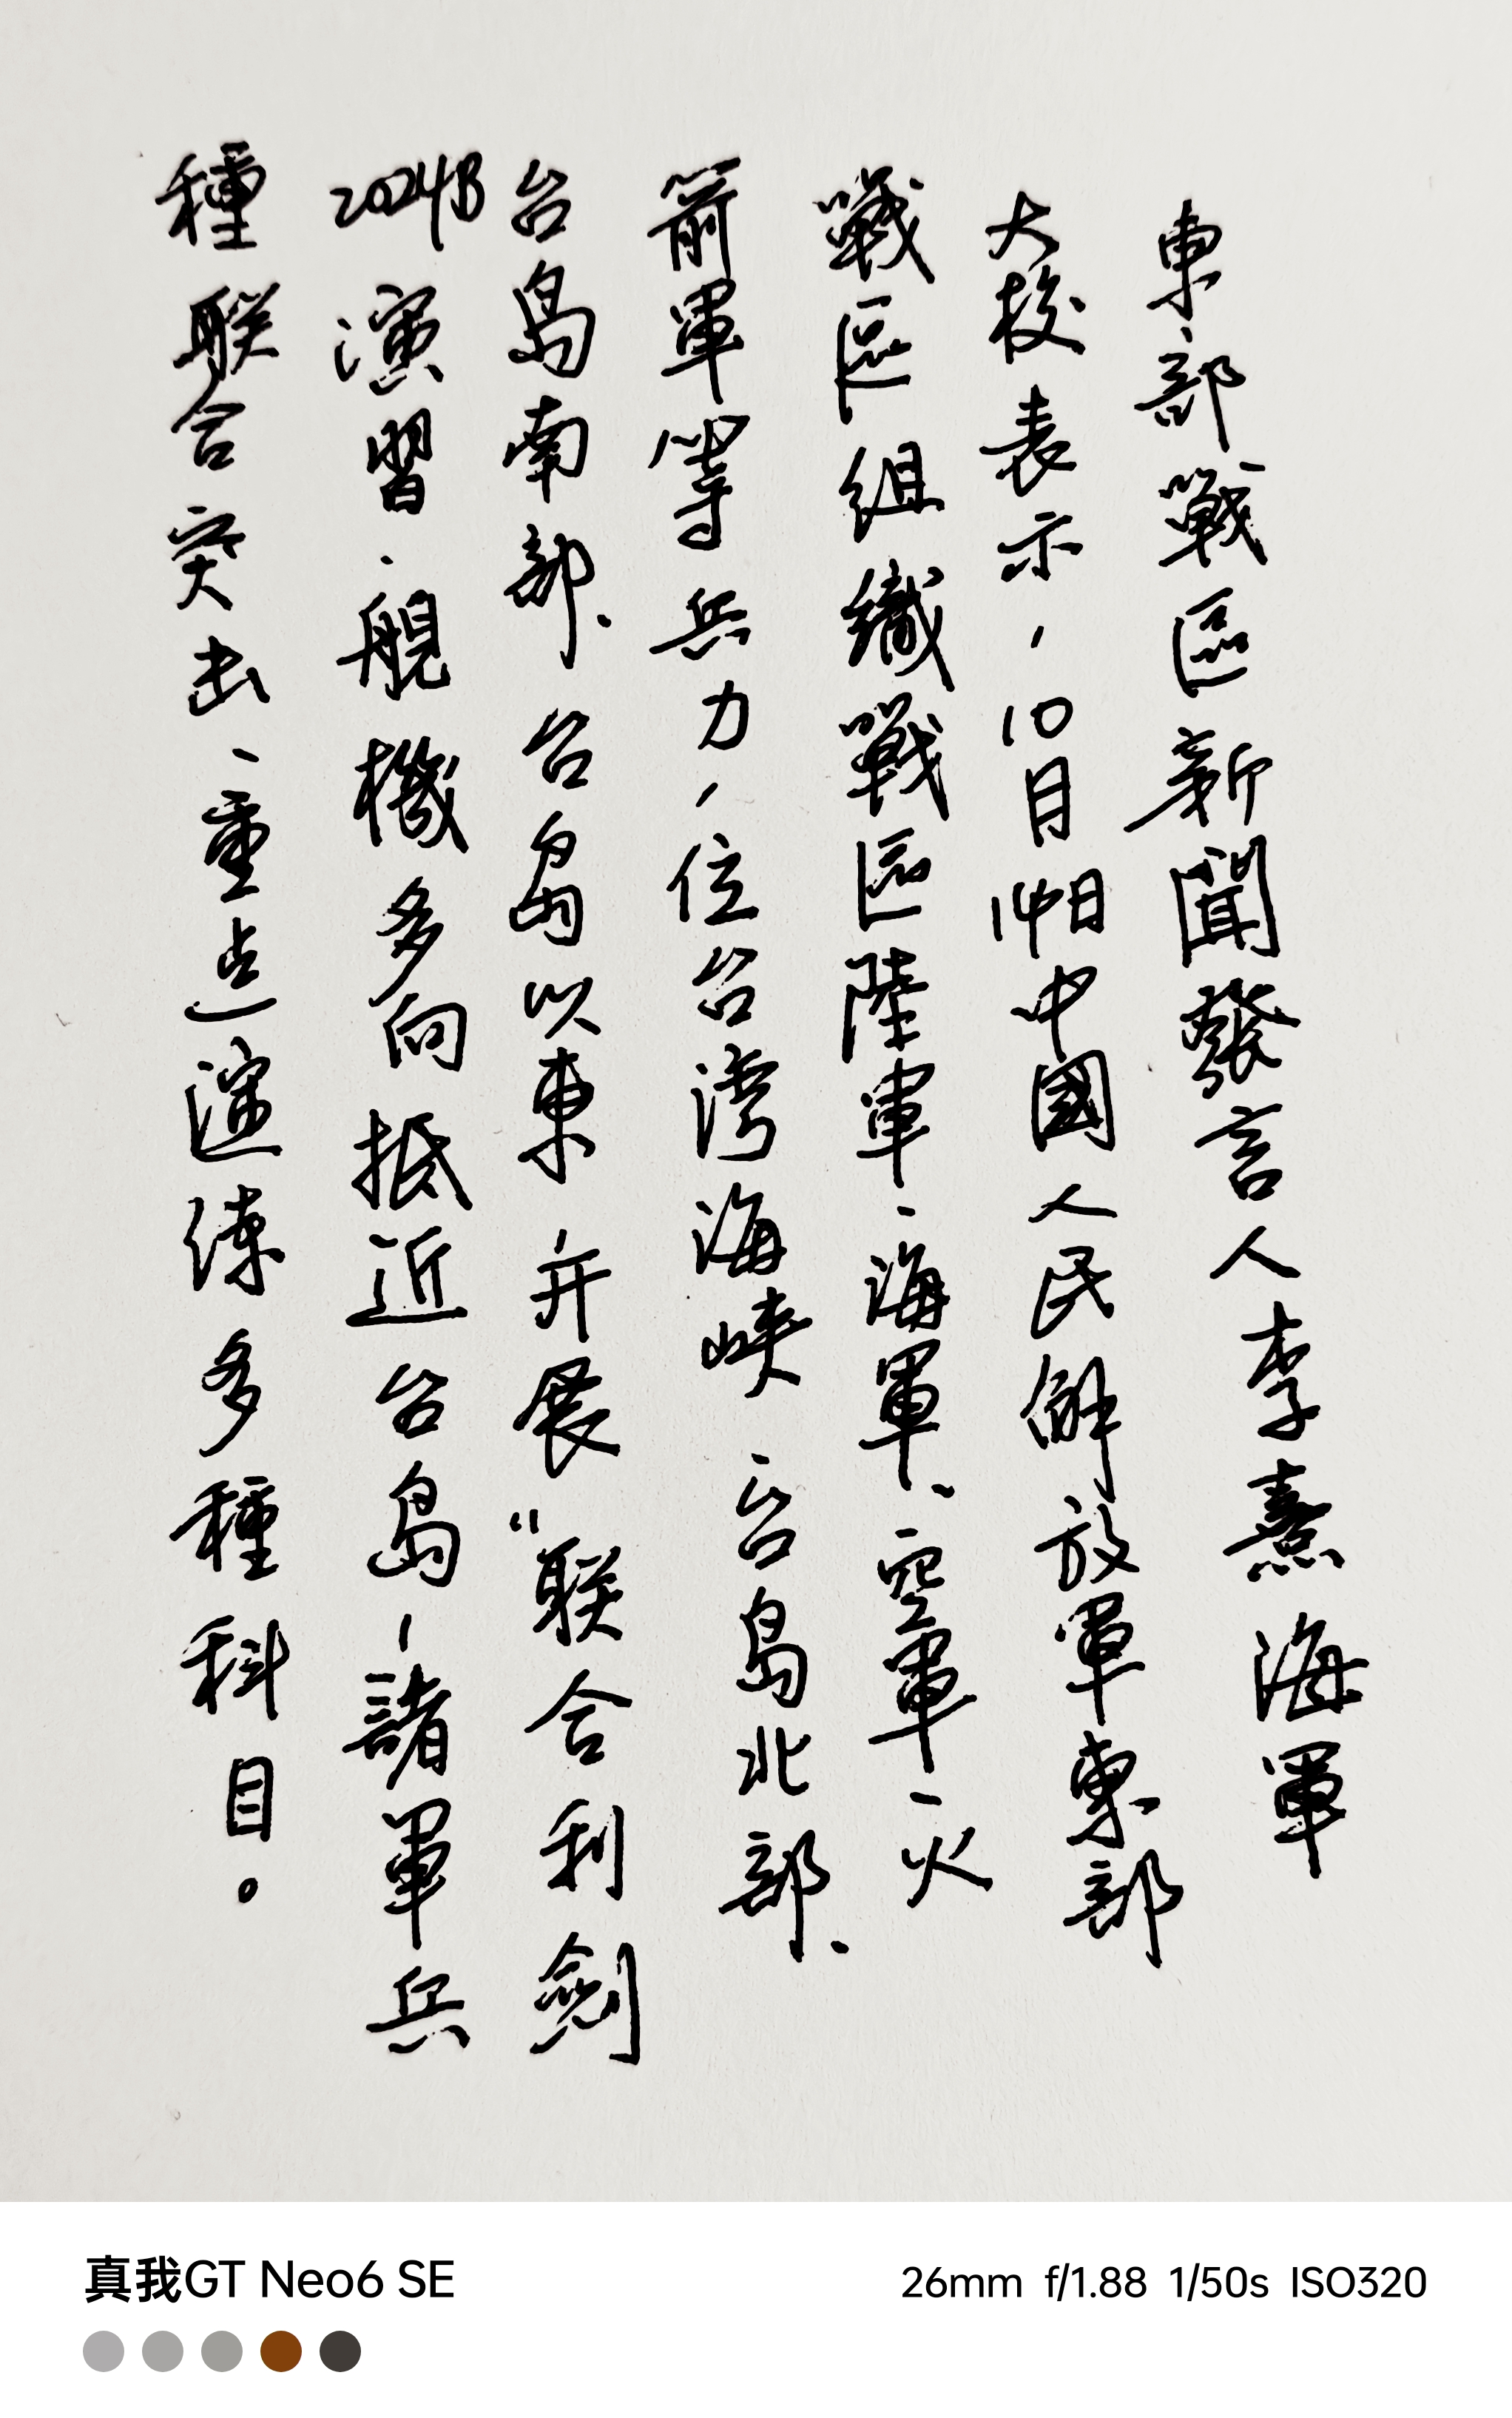 東部戰區新聞發言人李熹海軍
大校表示，10月14日中國人民解放軍東部
戰區組織戰區陸軍、海軍、空軍、火
箭軍等兵力，位台灣海峽、台島北部、
台島南部、台島以東 并展“联合利劍
2024B演習、艦機多向抵近台島、諸軍兵
種联合突击、重点演練多種科目。
真我GT Neo6 SE
26mm f/1.88 1/50s ISO320